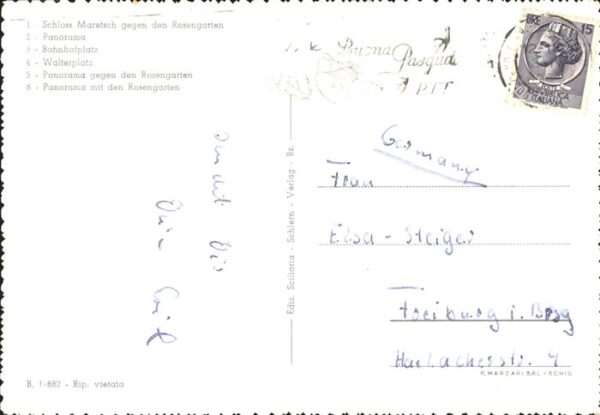 1 - Schloss Maretsch gegen den Rosengarten
2 - Panorama
3 - Bahnhofplatz
4 - Walterplatz
5 - Panorama gegen den Rosengarten
6 - Panorama mit den Rosengarten
Buona
Pasqua
PTT
LIRE 15
REPUBBLICA
ITALIANA
Germany
Frau
Elsa - Steiger
Freiburg i. Brsg
Harlacherstr. 4
Dein Emil
Ediz. Sciliaria - Schlern - Verlag - Bz.
P. MARZARI SRL - SCHIO
B. 1/882 - Rip. vietata